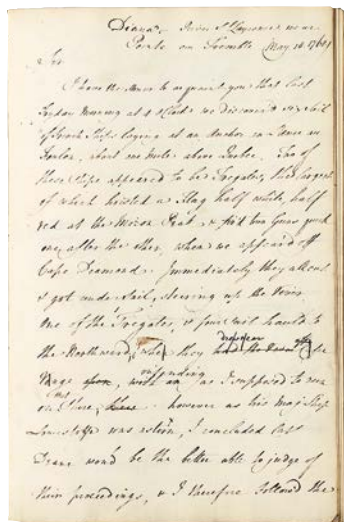 Diana River St Laurence near
Pointe au Tremble May 18 1760
Sir
I have the honor to acquaint you that last
Fryday Morning at 4 oClock we discover'd six Sail
of French Ships laying at an Anchor in
about one mile above Quebec. Two of
these Ships appeared to be Fregates, the largest
of which hoisted a Flag half white, half
red at the Mizon Peak, & fir'd two Guns quick
one after the other, when we appeard off
Cape Diamond. Immediately they all cut
& got under Sail, steering up the River
One of the Fregates, & four sail hauld to
the Northward, they
disappear
as I supposed to run
on Shore, however as his Maj Ship
Lowestoffe was astern, I concluded Capt
Deane wou'd be the better able to judge of
their proceedings, & I therefore followed the